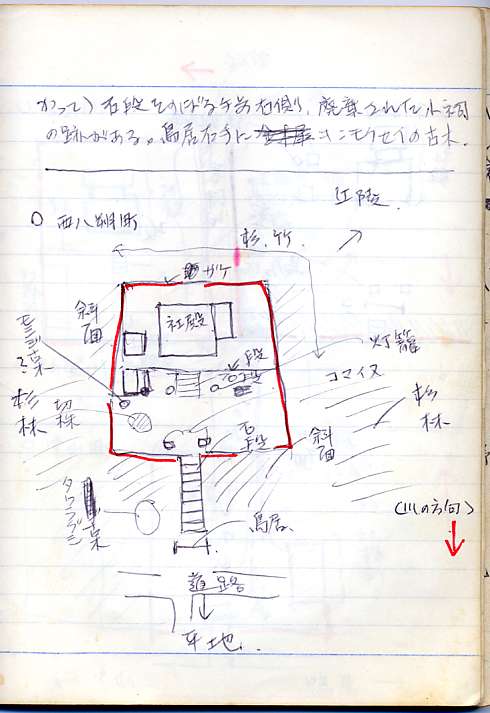 かって)石段をのぼる手前右側に、廃棄された小祠
の跡がある。鳥居右手にキンモクセイの古木.
丘陵.
○ 西八朔町
杉.竹.
ガケ
斜面
社殿
モミジ
杉林
切株
段
灯籠
コマイヌ
杉林
石段
斜面
鳥居
(川の方向)
道路
平地.